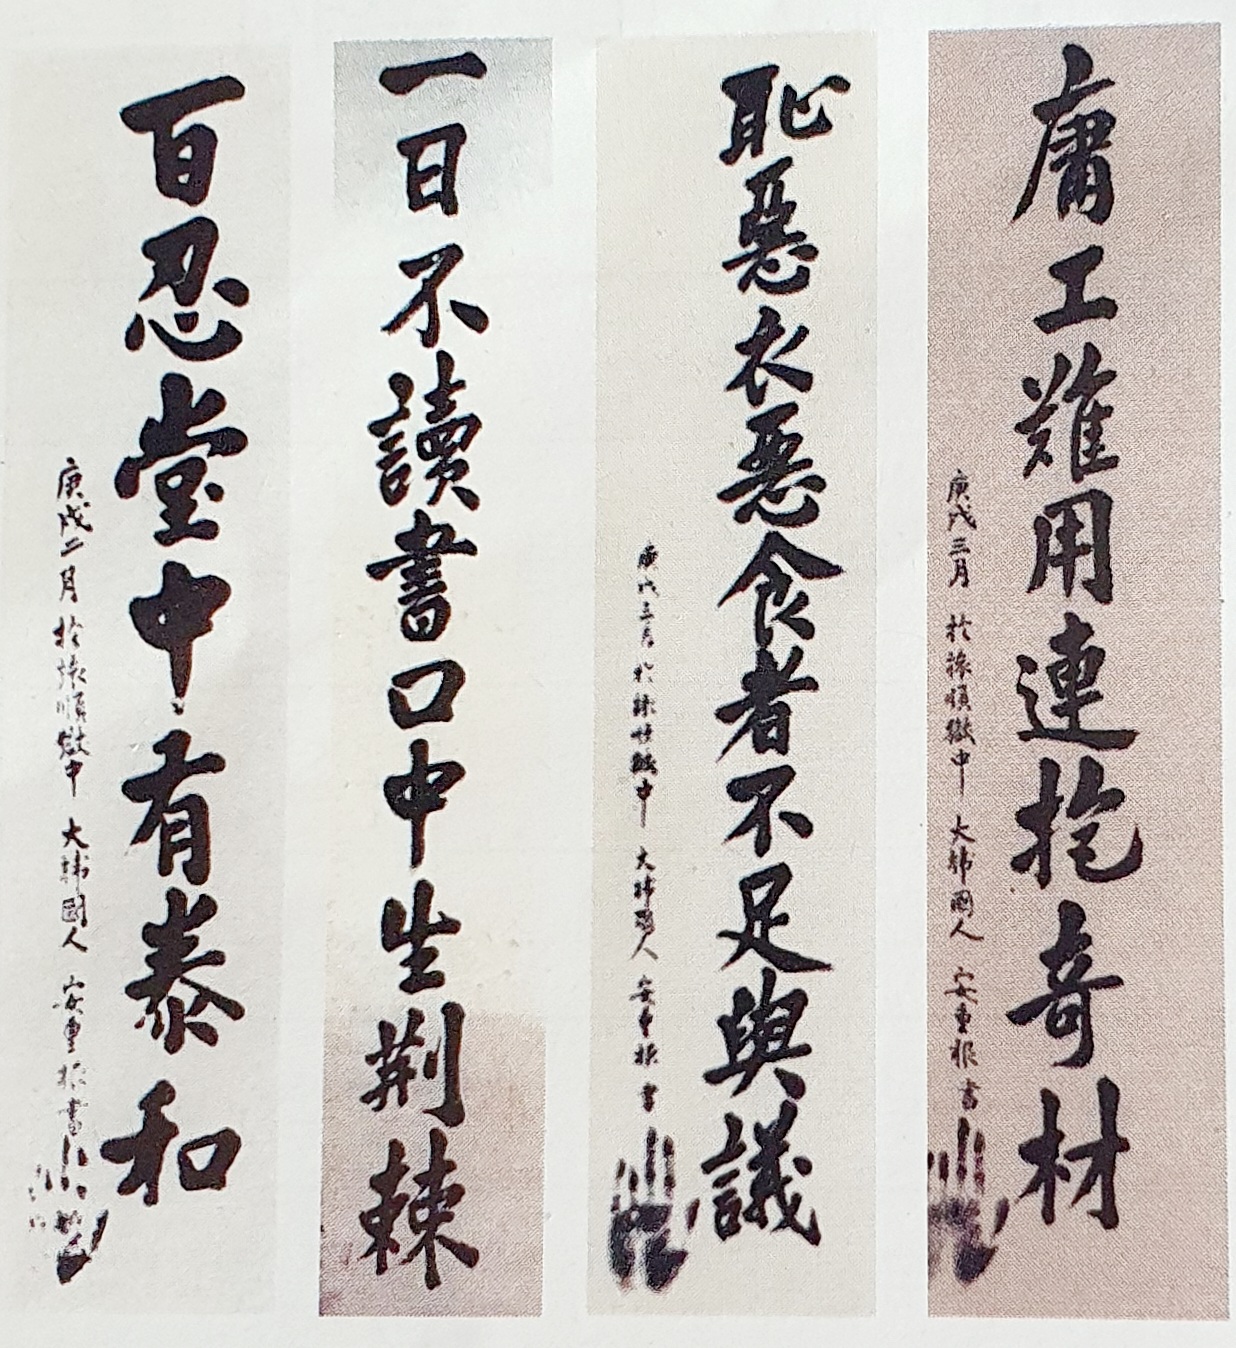 庸工難用連抱奇材
庚戌三月 於旅順獄中 大韓國人 安重根 書
恥惡衣惡食者不足與議
庚戌三月 於旅順獄中 大韓國人 安重根 書
一日不讀書口中生荊棘
百忍堂中有泰和
庚戌二月 於旅順獄中 大韓國人 安重根 書